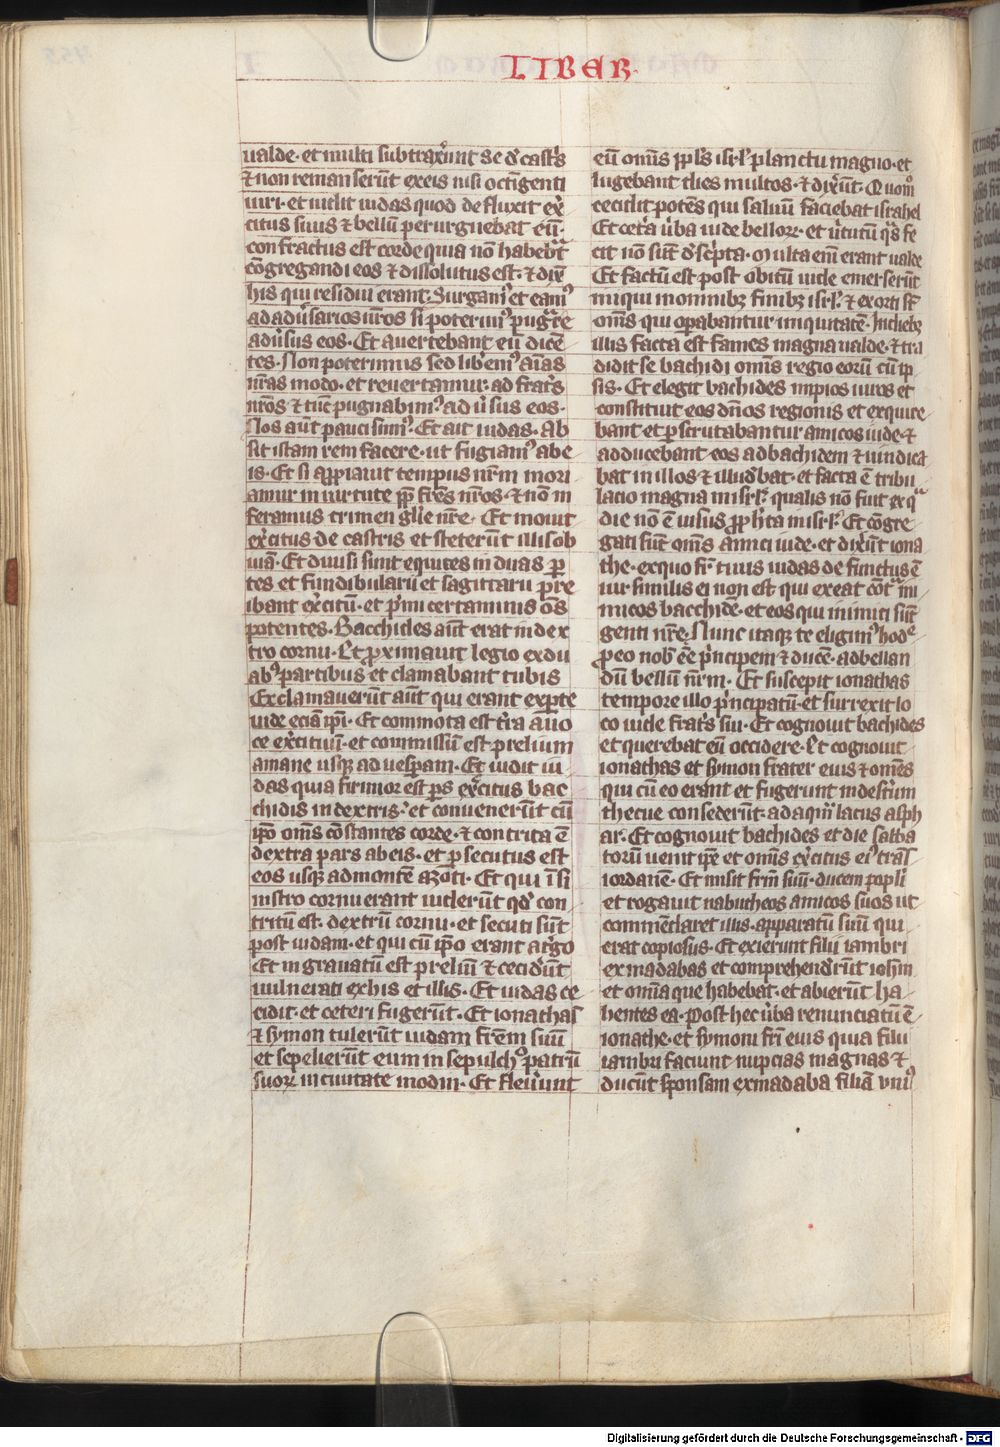 LIBER
ualde· et multi subtraxerūt se de castris
⁊ non remanserūt ex eis nisi octīgenti
uiri· et uidit iudas quod defluxit exer
citus suus ⁊ bellū perurguebat eū·
confractus est corde quia nō habebat
congregandi eos ⁊ dissolutus est· ⁊ dixit
his qui residui erant· Surgamus et eamus
ad aduersarios nr̄os si poterimus pugnare
aduersus eos· Et auertebant eū dicē
tes· Non poterimus sed liberemus aīas
nr̄as modo· et reuertamur ad fratres
nr̄os ⁊ tūc pugnabimus aduersus eos·
Nos aūt pauci sumus· Et ait iudas· Ab
sit istam rem facere· ut fugiamus ab e
is· Et si appiauit tempus nr̄m mori
amur in uirtute ꝓpter fr̄es nr̄os· ⁊ nō in
feramus crimen gl̄ie nr̄e· Et mouit
exercitus de castris et steterūt illis ob
uiā· Et diuisi sunt equites in duas par
tes et fundibularii et sagittarii pre
ibant exercitū· et primi certaminis om̄s
potentes· Bacchides aūt erat in dex
tro cornu· Et proximauit legio ex du
abus partibus et clamabant tubis
Exclamauerūt aūt qui erant ex parte
iude eciā ipsi· Et commota est terra a uo
ce exercituū· et commissū est prelium
a mane usque ad uesperam· Et uidit iu
das quia firmior est pars exercitus bac
chidis in dextris· et conuenerūt cū
ipso om̄s cōstantes corde· ⁊ contrita ē
dextra pars ab eis· et persecutus est
eos usque ad montē azoti· Et qui ī si
nistro cornu erant uiderūt quod con
tritū est dextrū cornu· et secuti sūt
post iudam· et qui cū ipso erant a tergo
Et ingrauatū est preliū ⁊ ceciderūt
uulnerati ex his et illis· Et iudas ce
cidit· et ceteri fugerūt· Et ionathas
⁊ symon tulerūt iudam frēm suū
et sepelierūt eum in sepulchro patrū
suorum in ciuitate modin· Et fleuerunt
eū om̄is ppl̄s isrl̄ planctu magno· et
lugebant dies multos· ⁊ dixerūt· Quomodo
cecidit potēs qui saluū faciebat israhel
Et cetera uerba iude bellorum et uirtutū quas fe
cit nō sūt descripta· Multa enī erant ualde
Et factū est post obitū iude emerserūt
iniqui in omnibus finibus isrl̄· ⁊ exorti sūt
om̄s qui operabantur iniquitatē· In diebus
illis facta est fames magna ualde· ⁊ tra
didit se bachidi om̄is regio eorū cū ip
sis· Et elegit bachides impios uiros et
constituit eos dn̄os regionis et exquire
bant et perscrutabantur amicos iude· ⁊
adducebant eos ad bachidem ⁊ uindica
bat in illos ⁊ illudebat· et facta ē tribu
lacio magna in isrl̄ qualis nō fuit ex qua
die nō ē uisus propheta in isrl̄· Et cōgre
gati sūt om̄s amici iude· et dixerūt iona
the· ex quo fr̄ tuus iudas defunctus ē
uir similis ei non est qui exeat contra ini
micos bacchide· et eos qui inimici sūt
genti nr̄e· Nunc itaque te eligimus hodie
pro eo nobis ēe principem ⁊ ducē· ad bellan
dū bellū nr̄m· Et suscepit ionathas
tempore illo principatū· et surrexit lo
co iude fratris sui· Et cognouit bachides
et querebat eū occidere· Et cognouit
ionathas et symon frater eius ⁊ omēs
qui cū eo erant et fugerunt in desertum
thecue consederūt· ad aquam lacus asph
ar· Et cognouit bachides et die sabba
torū uenit ipse et omīs exercitus eius trans
iordanē· Et misit frēm suū· ducem populi
et rogauit nabutheos amicos suos ut
commendaret illis· apparatū suū qui
erat copiosus· Et exierunt filii iambri
ex madabas et comprehenderūt iohēm
et omīa que habebat· et abierūt ha
bentes ea· Post hec uerba renunciatū ē
ionathe· et symoni fr̄i eius quia filii
iambri faciunt nupcias magnas ⁊
ducūt sponsam ex madaba filiā unius
Digitalisierung gefördert durch die Deutsche Forschungsgemeinschaft - DFG